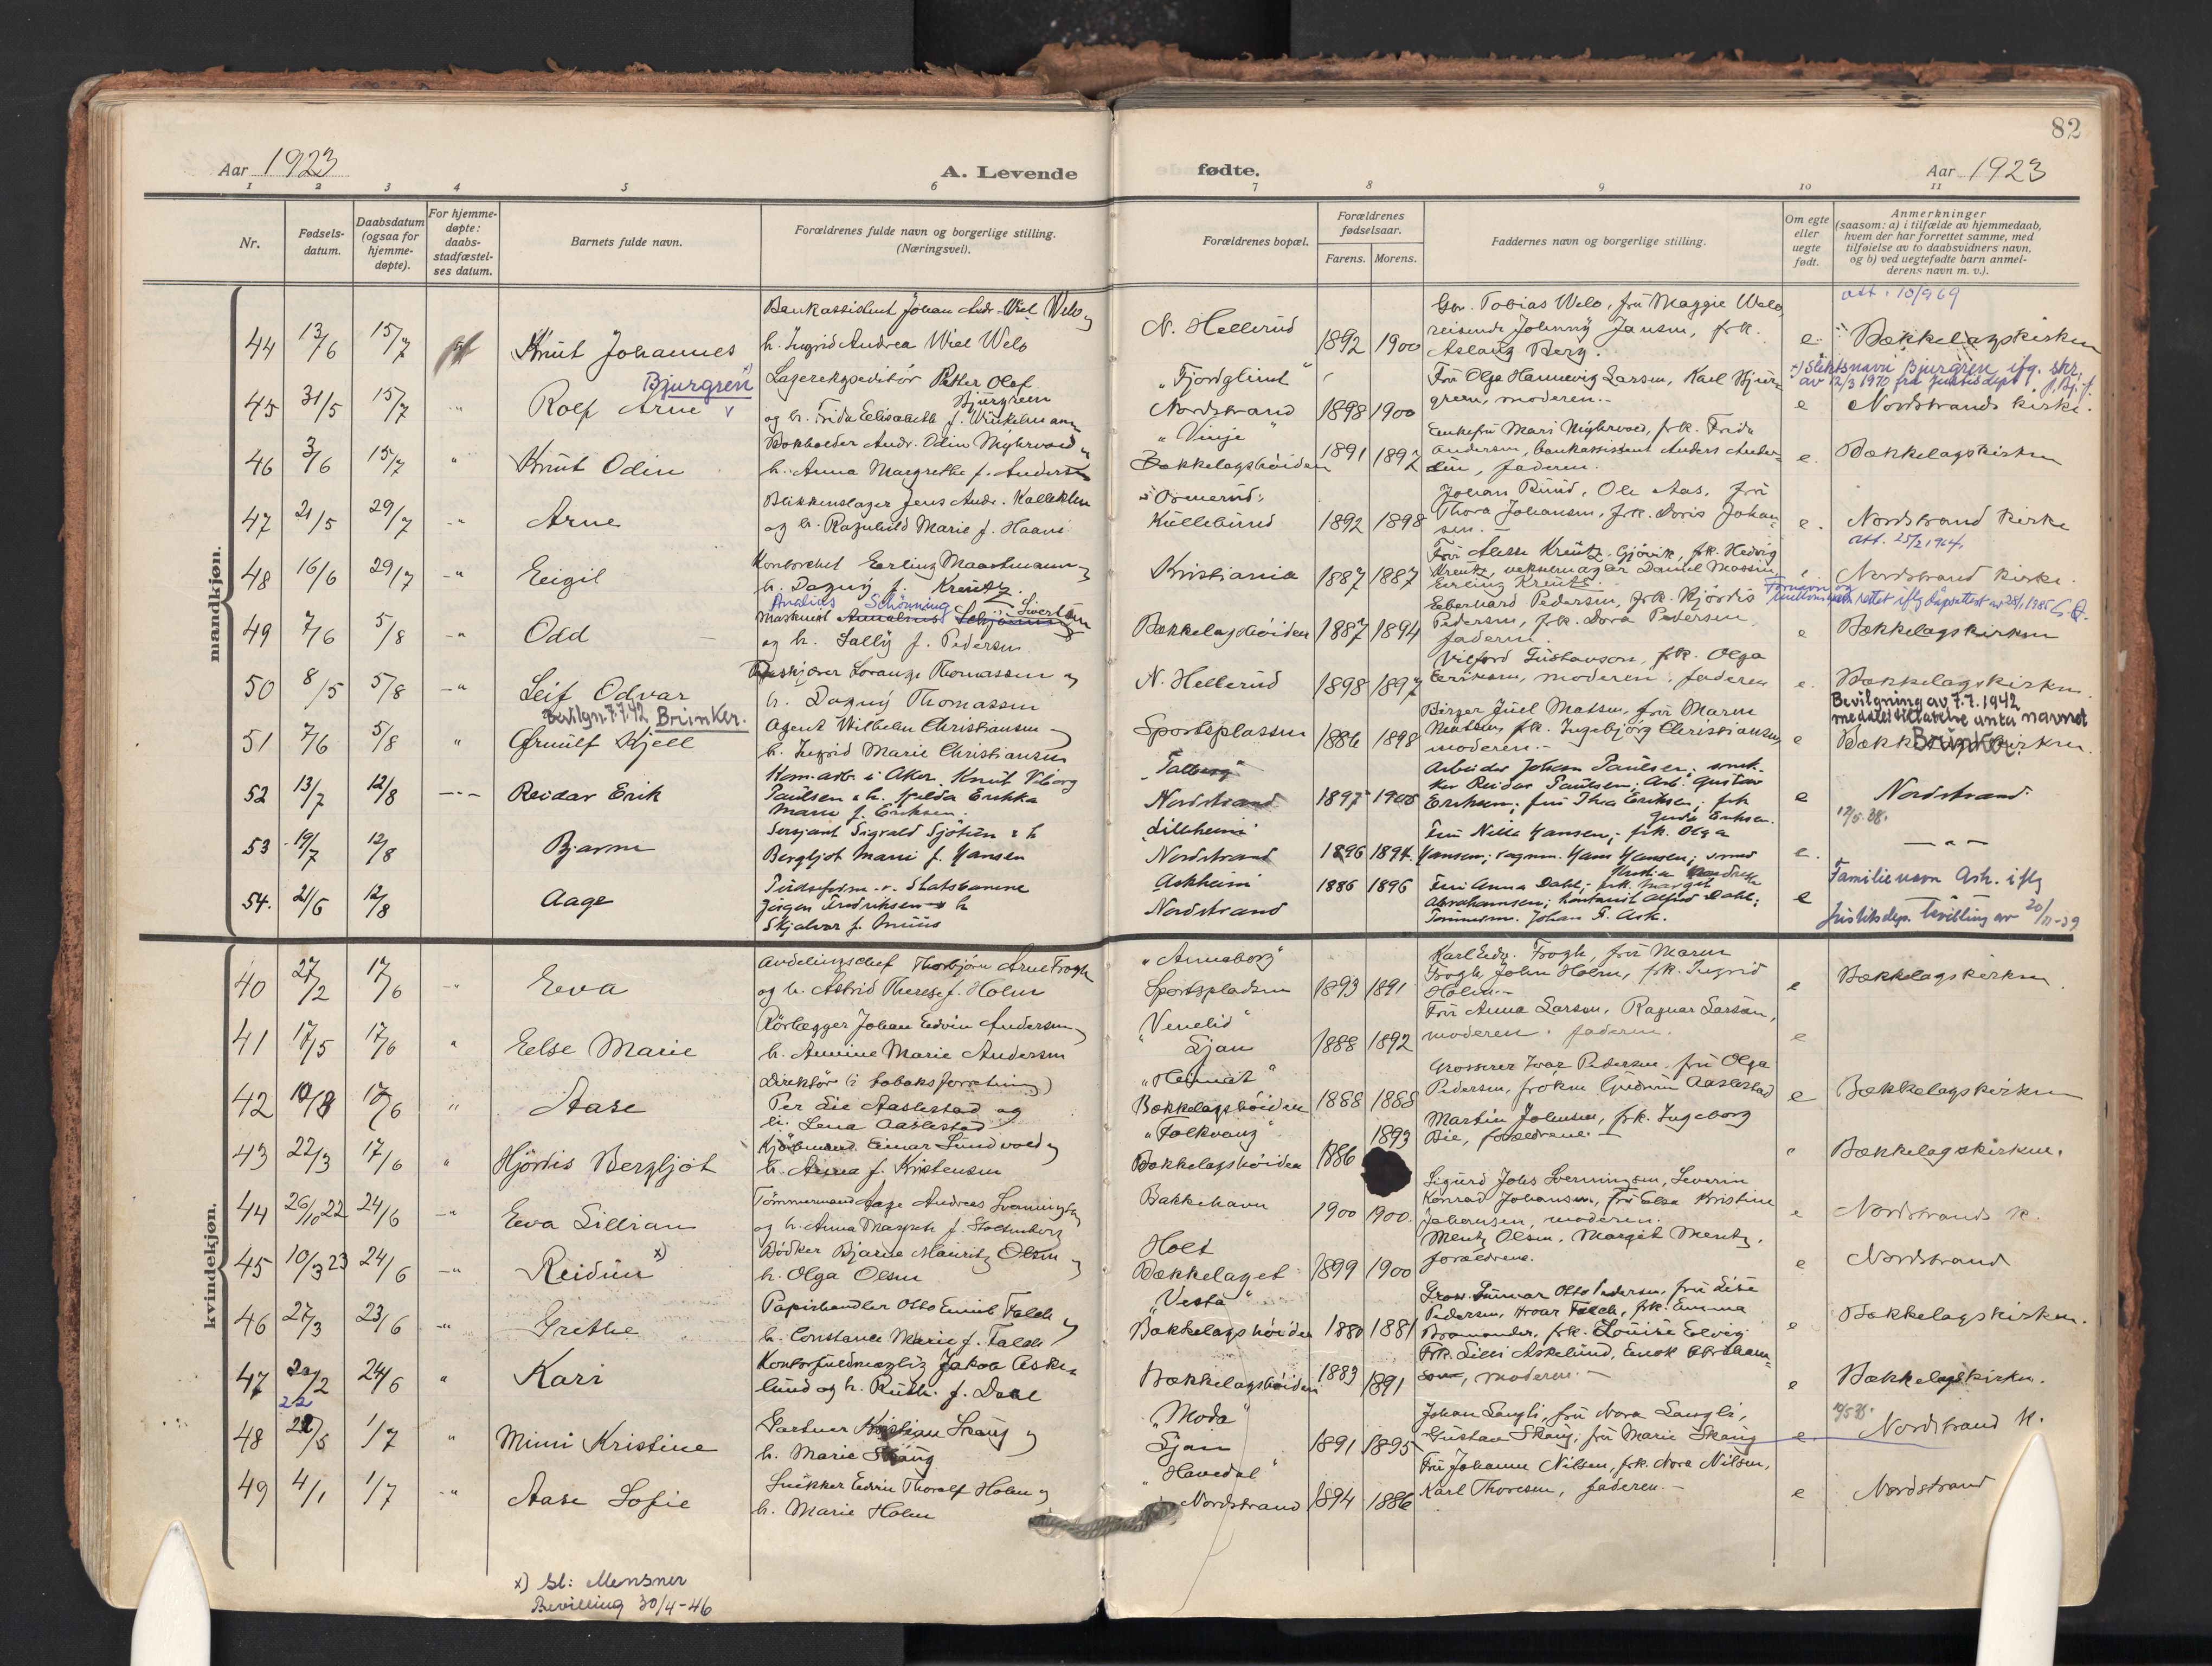 82
Aar 1923
A. Levende
fødte.
Aar 1923
1 2 3 4 5 6 7 8 9 10 11
Nr.
Fødsels-
datum.
Daabsdatum
(ogsaa for
hjemme-
døpte).
For hjemme-
døpte:
daabs-
stadfæstel-
ses datum.
Barnets fulde navn.
Forældrenes fulde navn og borgerlige stilling.
(Næringsvei).
Forældrenes bopæl.
Forældrenes
fødselsaar.
Farens. Morens.
Faddernes navn og borgerlige stilling.
Om egte
eller
uegte
født.
Anmerkninger
(saasom: a) i tilfælde av hjemmedaab,
hvem der har forrettet samme, med
tilføielse av to daabsvidners navn,
og b) ved uegtefødte barn anmel-
derens navn m. v.).
mandkjøn.
att. 10/9 69
Bankassistent Johan Andr. Wiel Welo og
44 13/6 15/7 Knut Johannes
h. Ingrid Andrea Wiel Welo
N. Hellerud 1892 1900
Gbr. Tobias Welo, fru Maggie Welo,
reisende Johnny Jansen, frk.
Aslaug Berg.
e. Bækkelagskirken
Bjurgren
45 31/5 15/7 Rolf Arne
Lagerekspeditør Petter Olof
Bjurgreen
og h. Frida Elisabeth f. Winkelmann
"Fjordglimt"
Nordstrand 1898 1900
Fru Olga Hannevig Larsen, Karl Bjur-
green, moderen.
e Nordstrands kirke.
Slektsnavn Bjurgren ifg. skr.
av 12/3 1970 fra Justisdept.
46 3/6 15/7 " Knut Odin
Bokholder Andr. Odin Myhrvold og
h. Anna Margrethe f. Andersen
"Vinje"
Bækkelagshøiden 1891 1892
Enkefru Mari Myhrvold, frk. Frida
Andersen, bankassistent Anders Ander-
sen, faderen.
e. Bækkelagskirken
47 21/5 29/7 -"- Arne
Blikkenslager Jens Andr. Kallekleu
og h. Ragnhild Marie f. Haave
"Ormerud"
Kullebund 1892 1898
Johan Rund, Ole Aas, fru
Thora Johansen, frk. Doris Johan-
sen.
e. Nordstrand kirke
att. 25/2 1964.
48 16/6 29/7 -"- Eigil
Kontorchef Erling Maartmann og
h. Dagny f. Kreutz.
Kristiania 1887 1887
Fru Alette Kreutz, Gjøvik, frk. Hedvig
Kreutz, Daniel
Erling Kreutz.
Nordstrand kirke.
Analius Schönning
49 7/6 5/8 -"- Odd
Maskinist Sivertsen
og h. Sally f. Pedersen
Bækkelagshøiden 1887 1894
Eberhard Pedersen, frk. Hjørdis
Pedersen, frk. Dora Pedersen,
faderen.
Fornavn og
rettet iflg dåpsattest av 25/1 1985
e Bækkelagskirken
50 8/5 5/8 -"- Leif Odvar
Lorang Thomassen og
h. Dagny Thomassen
N. Hellerud 1898 1897
Vilford Gustavson, frk. Olga
Eriksen, moderen, faderen
e. Bækkelagskirken.
Bevilgn. 7.7.42 Brinker.
51 7/6 5/8 " Ørnulf Kjell
Agent Wilhelm Christiansen og
h. Ingrid Marie Christiansen
Sportsplassen 1886 1898
Birger Juel Matsen, fru Maren
Matsen, frk. Ingebjørg Christiansen,
moderen.
e Bækkelagskirken.
Bevilgning av 7.7.1942
med til å anta navnet
Brinker
52 13/7 12/8 -"- Reidar Erik
Kom.arb. i Aker Knut Viborg
Paulsen & h. Hilda Erikka
Marie f. Eriksen.
"Talberg"
Nordstrand 1897 1900
Arbeider Johan Paulsen; snek-
ker Reidar Paulsen; Arb. Gustav
Eriksen; fru Thea Eriksen; frk
Eriksen.
e Nordstrand.
12/5.38.
53 19/7 12/8 Bjarne
Sersjant Sigvald Sjøtun & h
Bergljot Marie f. Hansen
Lillheim
Nordstrand 1896 1894.
Fru Nilla Hansen; frk. Olga
Hansen; vognm. Hans Hansen; smed
e. -"-
54. 21/6 12/8 Aage
Statsbanene
Jørgen Fredriksen & h
Skjalvor f. Muus
Askheim
Nordstrand 1886 1896
Fru Anna Dahl; frk. Margit
Abrahamsen; kontorist Alfred Dahl;
Tømmerm. Johan F. Ask.
e
Familienavn Ask. iflg
justisdep. bevilling av 20/11-39
kvindekjøn.
40 27/2 17/6 -"- Eva
Avdelingschef Thorbjørn Arne Frogh
og h. Astrid Therese f. Holm
"Anneborg"
Sportspladsen 1893 1891
Karl Edv. Frogh, fru Maren
Frogh, John Holm, frk. Ingrid
Holm.
e Bækkelagskirken
41 17/5 17/6 " Else Marie
Rørlægger Johan Edvin Andersen og
h. Annine Marie Andersen
"Venelid"
Ljan 1888 1892
Fru Anna Larsen, Ragnar Larsen,
moderen, faderen.
e
42 17/6 " Aase
Direktør (i tobaksforretning)
Per Lie Aaslestad og
h. Lena Aaslestad
"Heimat"
Bækkelagshøiden 1888 1888
Grosserer Ivar Pedersen, fru Olga
Pedersen, frøken Gudrun Aaslestad
e Bækkelagskirken
43 22/3 17/6 " Hjördis Bergljot
Kjøbmand Einar Lundvold og
h. Anna f. Kristensen
"Folkvang"
Bækkelagshøiden 1886 1893
Martin Johnsen, frk. Ingeborg
Bie, forældrene.
Bækkelagskirken.
44 26/10 22 24/6 -"- Eva Lillian
Tømmermand Aage Andreas Svenningsen
og h. Anna Margrete f. Stoltenberg
Bakkehavn 1900 1900.
Sigurd Johs Svenningsen, Severin
Konrad Johansen, Fru Elsa Kristine
Johansen, moderen.
e Nordstrands K.
45 10/3 23 24/6 -"- Reidun x)
Bødker Bjarne Mauritz Olsen og
h. Olga Olsen
Holt
Bækkelaget 1899 1900
Mentz Olsen, Margit Mentz,
forældrene.
e Nordstrand
46 27/3 23/6 -"- Grethe
Papirhandler Otto Emil Falch og
h. Constance Marie f. Falch
"Vesta"
Bækkelagshøiden 1880 1881
Gross. Gunnar Otto Pedersen, fru Lise
Pedersen, Hroar Falch, frk. Emma
Bramander, frk. Louise Elvig
e Bækkelagskirken.
47 22/2 24/6 " Kari
22
Kontorfuldmægtig Jakob Aske-
lund og h. Ruth f. Dahl
Bækkelagshøiden 1883 1891
Frk. Lilli Askelund, Enok Abraham-
sen, moderen.
e Bækkelagskirken.
48 22/5 1/7 " Mimi Kristine
Gartner Kristian Skaug og
h. Marie Skaug
"Moda"
Ljan 1891 1895
Johan Langli, fru Nora Langli,
Gustav Skaug, fru Marie Skaug
e. Nordstrand K.
49 4/1 1/7 -"- Aase Sofie
Snekker Edvin Thoralf Holm og
h. Marie Holm
"Havedal"
Nordstrand 1894 1886
Fru Johanne Nilsen, frk. Nora Nilsen,
Karl Thoresen, faderen.
e Nordstrand
x) Sl: Mensner
Bevilling 30/4-46